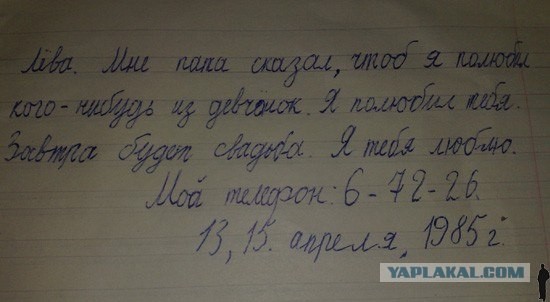 Лева. Мне папа сказал, чтоб я полюбил
кого-нибудь из девчонок. Я полюбил тебя.
Завтра будет свадьба. Я тебя люблю.
Мой телефон: 6-72-26.
13, 15. апреля, 1985 г.
YAPLAKAL.COM